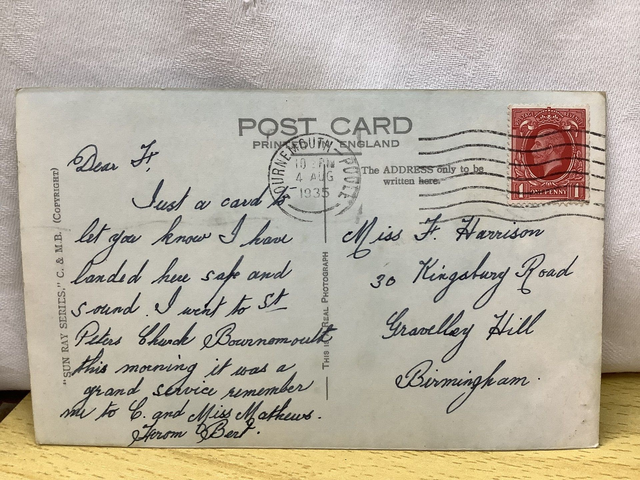 POST CARD
PRINTED IN ENGLAND
The ADDRESS only to be
written here.
BOURNEMOUTH POOLE
10 PM
4 AUG
1935
POSTAGE REVENUE
1 ONE PENNY 1
"SUN RAY SERIES." C. & M.B. (COPYRIGHT)
THIS IS A REAL PHOTOGRAPH
Dear F,
Just a card to
let you know I have
landed here safe and
sound. I went to St
Peters Church Bournemouth
this morning it was a
grand service remember
me to C. and Miss Mathews.
From Bert.
Miss F. Harrison
30 Kingsbury Road
Gravelley Hill
Birmingham.